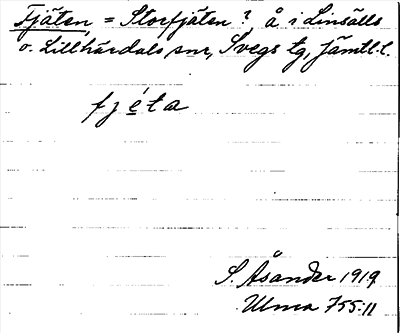 Fjäten, = Storfjäten? å i Linsälls
o. Lillhärdals snr, Svegs tg, Jämtl. l.
fjéta
S. Åsander 1919
Ulma 755:11